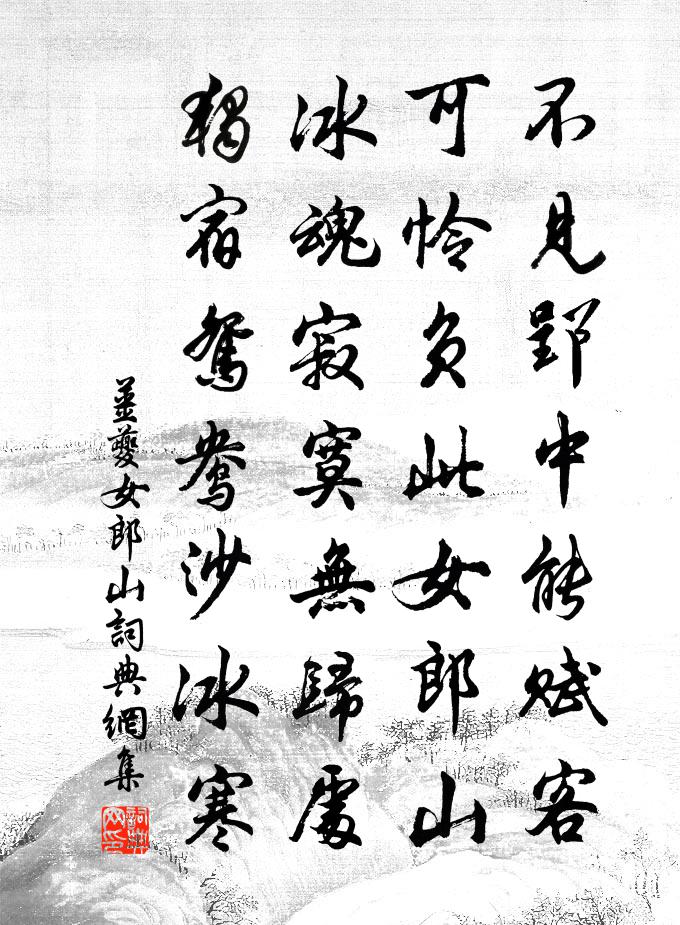 不見郢中能賦客
可怜負此女郎山
冰魂寂寞無歸處
獨宿鴛鴦沙冰寒
薑夔女郎山詞典網集